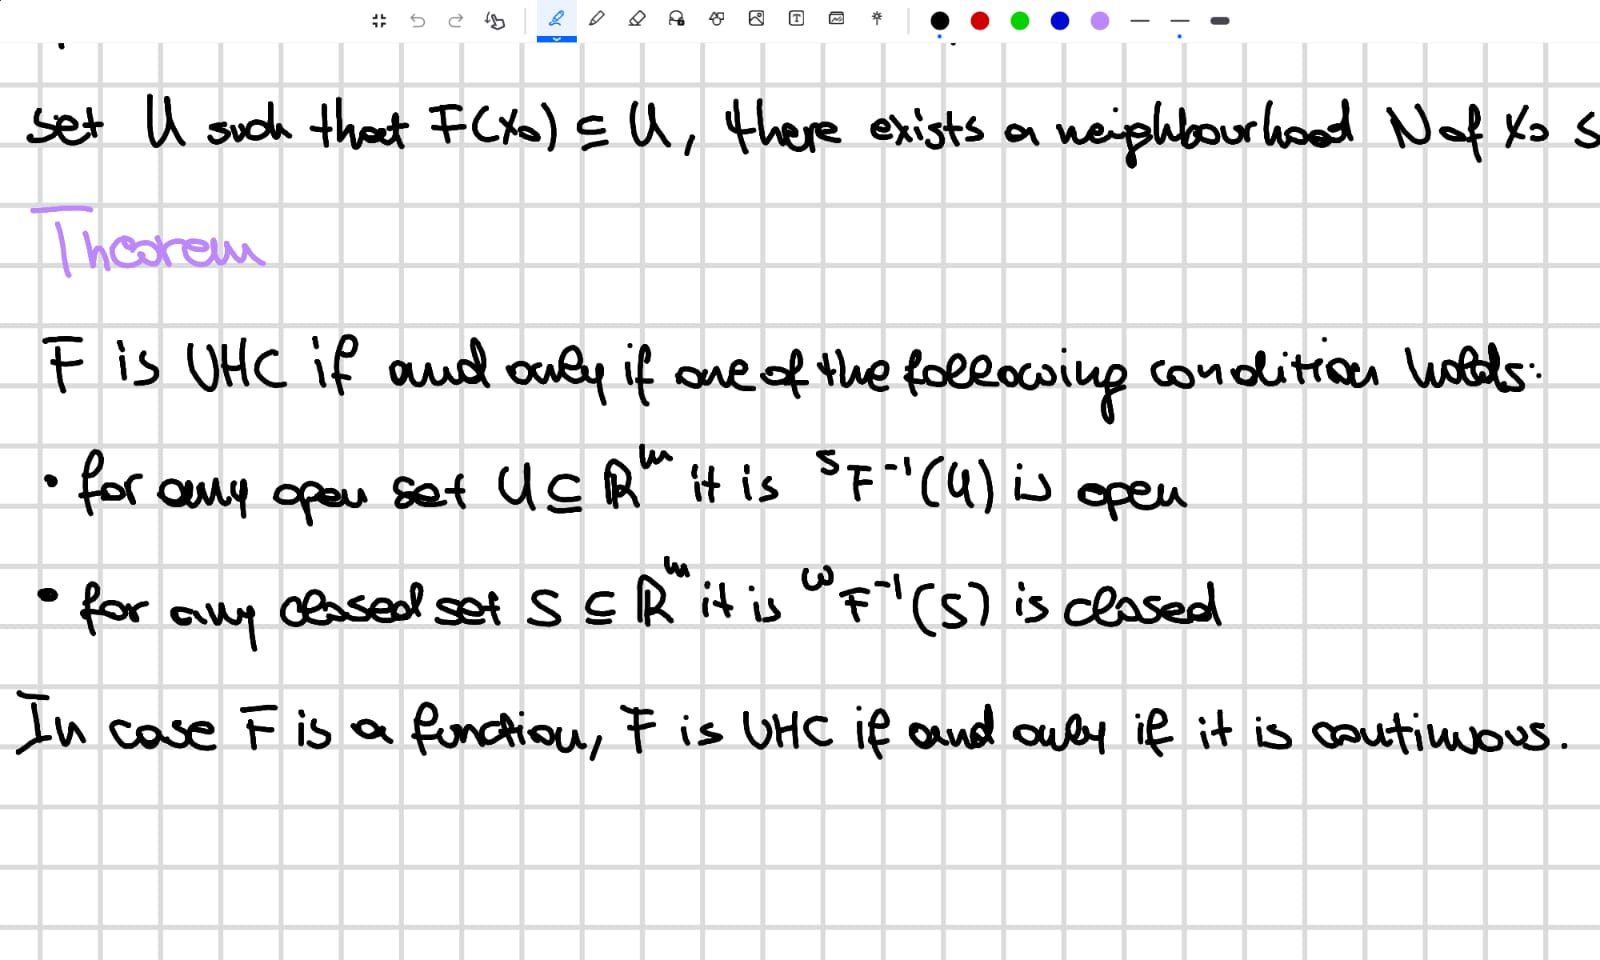 set U such that F(x₀) ⊆ U, there exists a neighbourhood N of x₀ s
Theorem
F is UHC if and only if one of the following condition holds:
• for any open set U ⊆ ℝᵐ it is ˢF⁻¹(U) is open
• for any closed set S ⊆ ℝᵐ it is ʷF⁻¹(S) is closed
In case F is a function, F is UHC if and only if it is continuous.